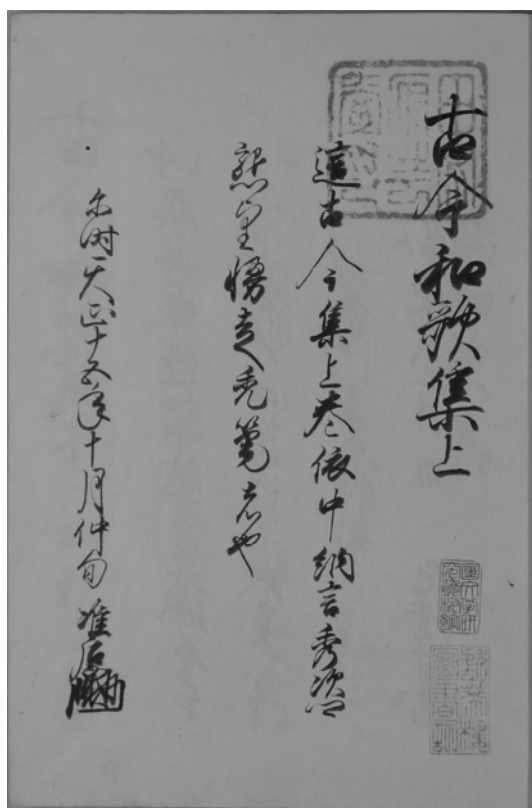 古今和歌集上
這古今集上巻依中納言秀次卿
懇望愕走禿筆者也
于時天正十五年十月仲旬 准后